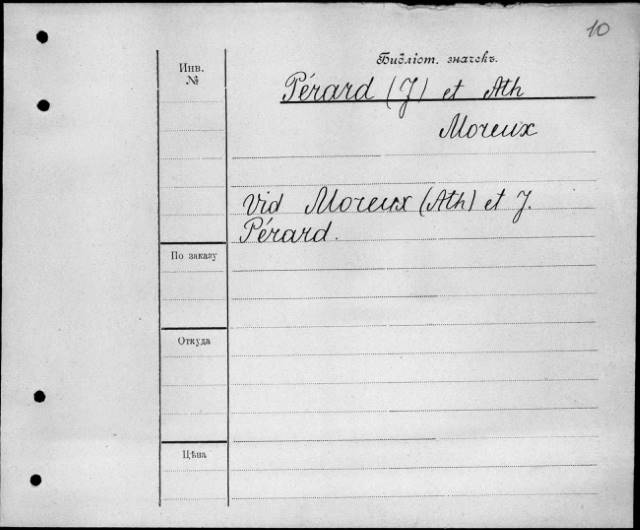 10
Библіот. значекъ.
Инв.
№
Pérard (J) et Ath
Moreux
Vid Moreux (Ath) et J.
Pérard.
По заказу
Откуда
Цѣна